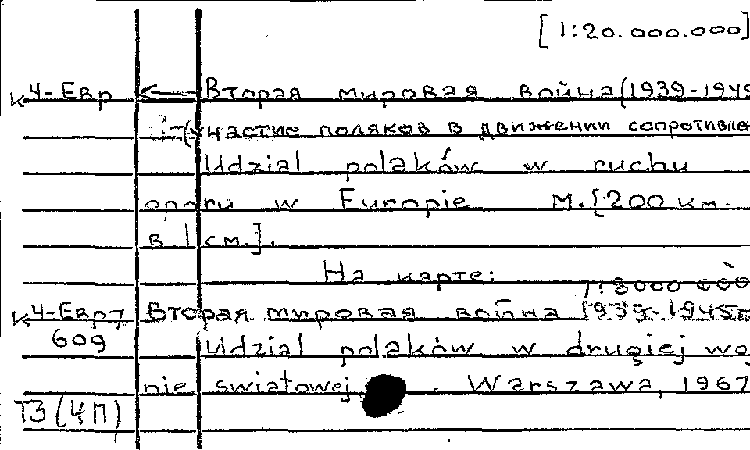 [1:20.000.000]
К4-Евр ← Вторая мировая война (1939-1945
(участие поляков в движении сопротивле
Udzial polaków w ruchu
oporu w Europie М.[200 км.
в 1 см.].
На карте: 1:8000 000
К4-Евр7 Вторая мировая война 1939-1945г
609 Udzial polaków w drugiej woj
nie swiatowej. Warszawa, 1967
Т3(4П)